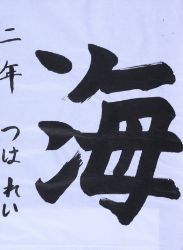 海
二年 つはれい